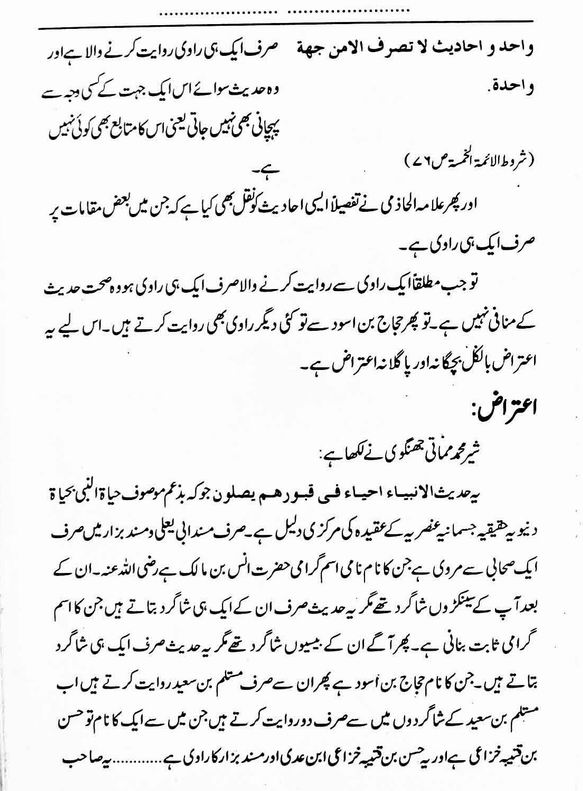 واحد و احادیث لا تصرف الامن جهة
واحدة.
(شروط الائمۃ الخمسۃ ص ۷۶)
صرف ایک ہی راوی روایت کرنے والا ہے اور
وہ حدیث سوائے اس ایک جہت کے کسی وجہ سے
پہچانی بھی نہیں جاتی یعنی اس کا متابع بھی کوئی نہیں
ہے۔
اور پھر علامہ الحاذمی نے تفصیلاً ایسی احادیث کو نقل بھی کیا ہے کہ جن میں بعض مقامات پر
صرف ایک ہی راوی ہے۔
تو جب مطلقاً ایک راوی سے روایت کرنے والا صرف ایک ہی راوی ہو وہ صحت حدیث
کے منافی نہیں ہے۔ تو پھر حجاج بن اسود سے تو کئی دیگر راوی بھی روایت کرتے ہیں۔ اس لیے یہ
اعتراض بالکل بچگانہ اور پاگلانہ اعتراض ہے۔
اعتراض:
شیر محمد مماتی جھنگوی نے لکھا ہے:
یہ حدیث الانبیاء احیاء فی قبورهم یصلون جو کہ بذعم موصوف حیاۃ النبی بحیاۃ
دنیویہ حقیقیہ جسمانیہ عنصریہ کے عقیدہ کی مرکزی دلیل ہے۔ صرف مسند ابی یعلی و مسند بزار میں صرف
ایک صحابی سے مروی ہے جن کا نام نامی اسم گرامی حضرت انس بن مالک ہے رضی اللہ عنہ۔ ان کے
بعد آپ کے سینکڑوں شاگرد تھے مگر یہ حدیث صرف ان کے ایک ہی شاگرد بتاتے ہیں جن کا اسم
گرامی ثابت بنانی ہے۔ پھر آگے ان کے بیسیوں شاگرد تھے مگر یہ حدیث صرف ایک ہی شاگرد
بتاتے ہیں۔ جن کا نام حجاج بن اسود ہے پھر ان سے صرف مستلم بن سعید روایت کرتے ہیں اب
مستلم بن سعید کے شاگردوں میں سے صرف دو روایت کرتے ہیں جن میں سے ایک کا نام تو حسن
بن قتیبہ خزاعی ہے اور یہ حسن بن قتیبہ خزاعی ابن عدی اور مسند بزار کا راوی ہے ............ یہ صاحب